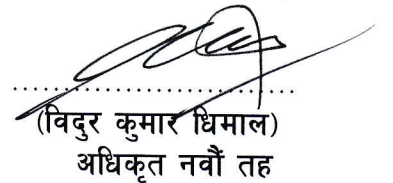 (विदुर कुमार धिमाल)
अधिकृत नवौं तह